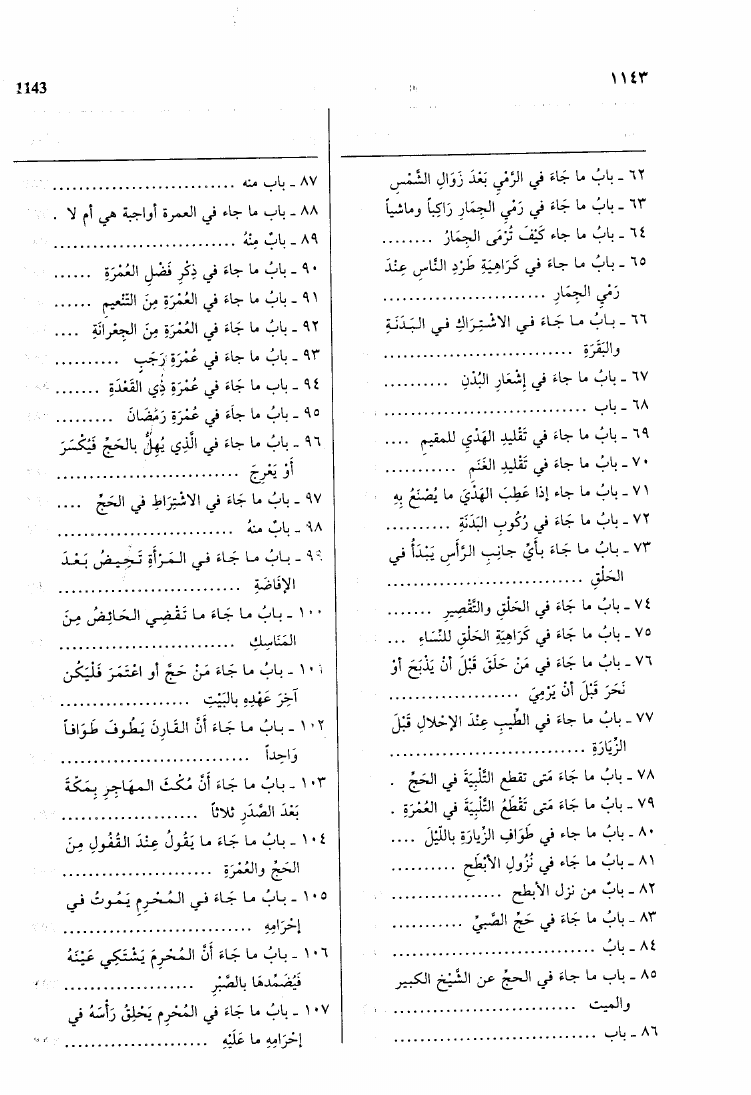 ١١٤٣
1143
٦٢ ـ بابُ ما جَاءَ في الرَّمْيِ بَعْدَ زَوَالِ الشَّمْسِ
٦٣ ـ بابُ ما جَاءَ في رَمْيِ الجِمَارِ رَاكِباً وماشياً
٦٤ ـ بابُ ما جاء كَيْفَ تُرْمَى الجِمَارُ ........
٦٥ ـ بابُ ما جاءَ في كَرَاهِيَةِ طَرْدِ النَّاسِ عِنْدَ
رَمْيِ الجِمَارِ ........................
٦٦ ـ بابُ ما جَاءَ في الاشْتِرَاكِ في البَدَنَةِ
والبَقَرَةِ ............................
٦٧ ـ بابُ ما جاءَ في إِشْعَارِ البُدْنِ ..........
٦٨ ـ باب ..............................
٦٩ ـ بابُ ما جَاءَ في تَقْلِيدِ الهَدْيِ للمقيمِ ....
٧٠ ـ بابُ ما جَاءَ في تَقْلِيدِ الغَنَمِ ..........
٧١ ـ بابُ ما جاء إذا عَطِبَ الهَدْيُ ما يُصْنَعُ بِهِ
٧٢ ـ بابُ ما جَاءَ في رُكُوبِ البَدَنَةِ ..........
٧٣ ـ بابُ ما جَاءَ بأَيِّ جانِبِ الرَّأسِ يَبْدَأُ في
الحَلْقِ .............................
٧٤ ـ بابُ ما جَاءَ في الحَلْقِ والتَّقْصِيرِ .......
٧٥ ـ بابُ ما جَاءَ في كَرَاهِيَةِ الحَلْقِ للنِّسَاءِ ...
٧٦ ـ بابُ ما جَاءَ في مَنْ حَلَقَ قَبْلَ أنْ يَذْبَحَ أوْ
نَحَرَ قَبْلَ أنْ يَرْمِيَ ...................
٧٧ ـ بابُ ما جاءَ في الطِّيبِ عِنْدَ الإحْلالِ قَبْلَ
الزِّيَارَةِ .............................
٧٨ ـ بابُ ما جَاءَ مَتى تقطع التَّلْبِيَةُ في الحَجِّ .
٧٩ ـ بابُ ما جَاءَ مَتَى تُقْطَعُ التَّلْبِيَةُ في العُمْرَةِ .
٨٠ ـ بابُ ما جاء في طَوَافِ الزِّيَارَةِ باللَّيْلِ ....
٨١ ـ بابُ ما جَاءَ في نُزُولِ الأبْطَحِ ..........
٨٢ ـ بابُ من نزل الأبطح ................
٨٣ ـ بابُ ما جَاءَ في حَجِّ الصَّبيِّ ...........
٨٤ ـ بابُ .............................
٨٥ ـ باب ما جاءَ في الحجِّ عن الشَّيْخِ الكبير
والميت ...........................
٨٦ ـ باب .............................
٨٧ ـ باب منه ...........................
٨٨ ـ باب ما جاء في العمرة أواجبة هي أم لا .
٨٩ ـ بابٌ مِنْهُ ...........................
٩٠ ـ بابُ ما جاءَ في ذِكْرِ فَضْلِ العُمْرَةِ ......
٩١ ـ بابُ ما جَاءَ في العُمْرَةِ مِنَ التَّنْعيمِ ......
٩٢ ـ بابُ ما جَاءَ في العُمْرَةِ مِنَ الجِعْرَانَةِ ....
٩٣ ـ بابُ ما جاءَ في عُمْرَةِ رَجَبٍ ..........
٩٤ ـ بابُ ما جَاءَ في عُمْرَةِ ذِي القَعْدَةِ .......
٩٥ ـ بابُ ما جاَءَ في عُمْرَةِ رَمَضَانَ .........
٩٦ ـ بابُ ما جَاءَ في الَّذِي يُهِلُّ بالحَجِّ فَيُكْسَرَ
أوْ يَعْرِجَ ...........................
٩٧ ـ بابُ ما جَاءَ في الاشْتِرَاطِ في الحَجِّ ....
٩٨ ـ بابٌ منهُ ..........................
٩٩ ـ بابُ ما جَاءَ في المَرْأةِ تَحِيضُ بَعْدَ
الإفَاضَةِ ...........................
١٠٠ ـ بابُ ما جَاءَ ما تَقْضِي الحَائِضُ مِنَ
المَنَاسِكِ ..........................
١٠١ ـ بابُ ما جَاءَ مَنْ حَجَّ أو اعْتَمَرَ فَلْيَكُن
آخِرَ عَهْدِهِ بالبَيْتِ ...................
١٠٢ ـ بابُ ما جَاءَ أنَّ القَارِنَ يَطُوفَ طَوَافاً
وَاحِداً ............................
١٠٣ ـ بابُ ما جَاءَ أنَّ مُكْثَ المهَاجِرِ بِمَكَّةَ
بَعْدَ الصَّدَرِ ثلاثاً ....................
١٠٤ ـ بابُ ما جَاءَ ما يَقُولُ عِنْدَ القُفُولِ مِنَ
الحَجِّ والعُمْرَةِ ......................
١٠٥ ـ بابُ ما جَاءَ في المُحْرِمِ يَمُوتُ في
إحْرَامِهِ ............................
١٠٦ ـ بابُ ما جَاءَ أنَّ المُحْرِمَ يَشْتَكِي عَيْنَهُ
فَيُضَمِّدهَا بالصَّبْرِ ...................
١٠٧ ـ بابُ ما جَاءَ في المُحْرِمِ يَحْلِقُ رَأسَهُ في
إحْرَامِهِ ما عَلَيْهِ .....................